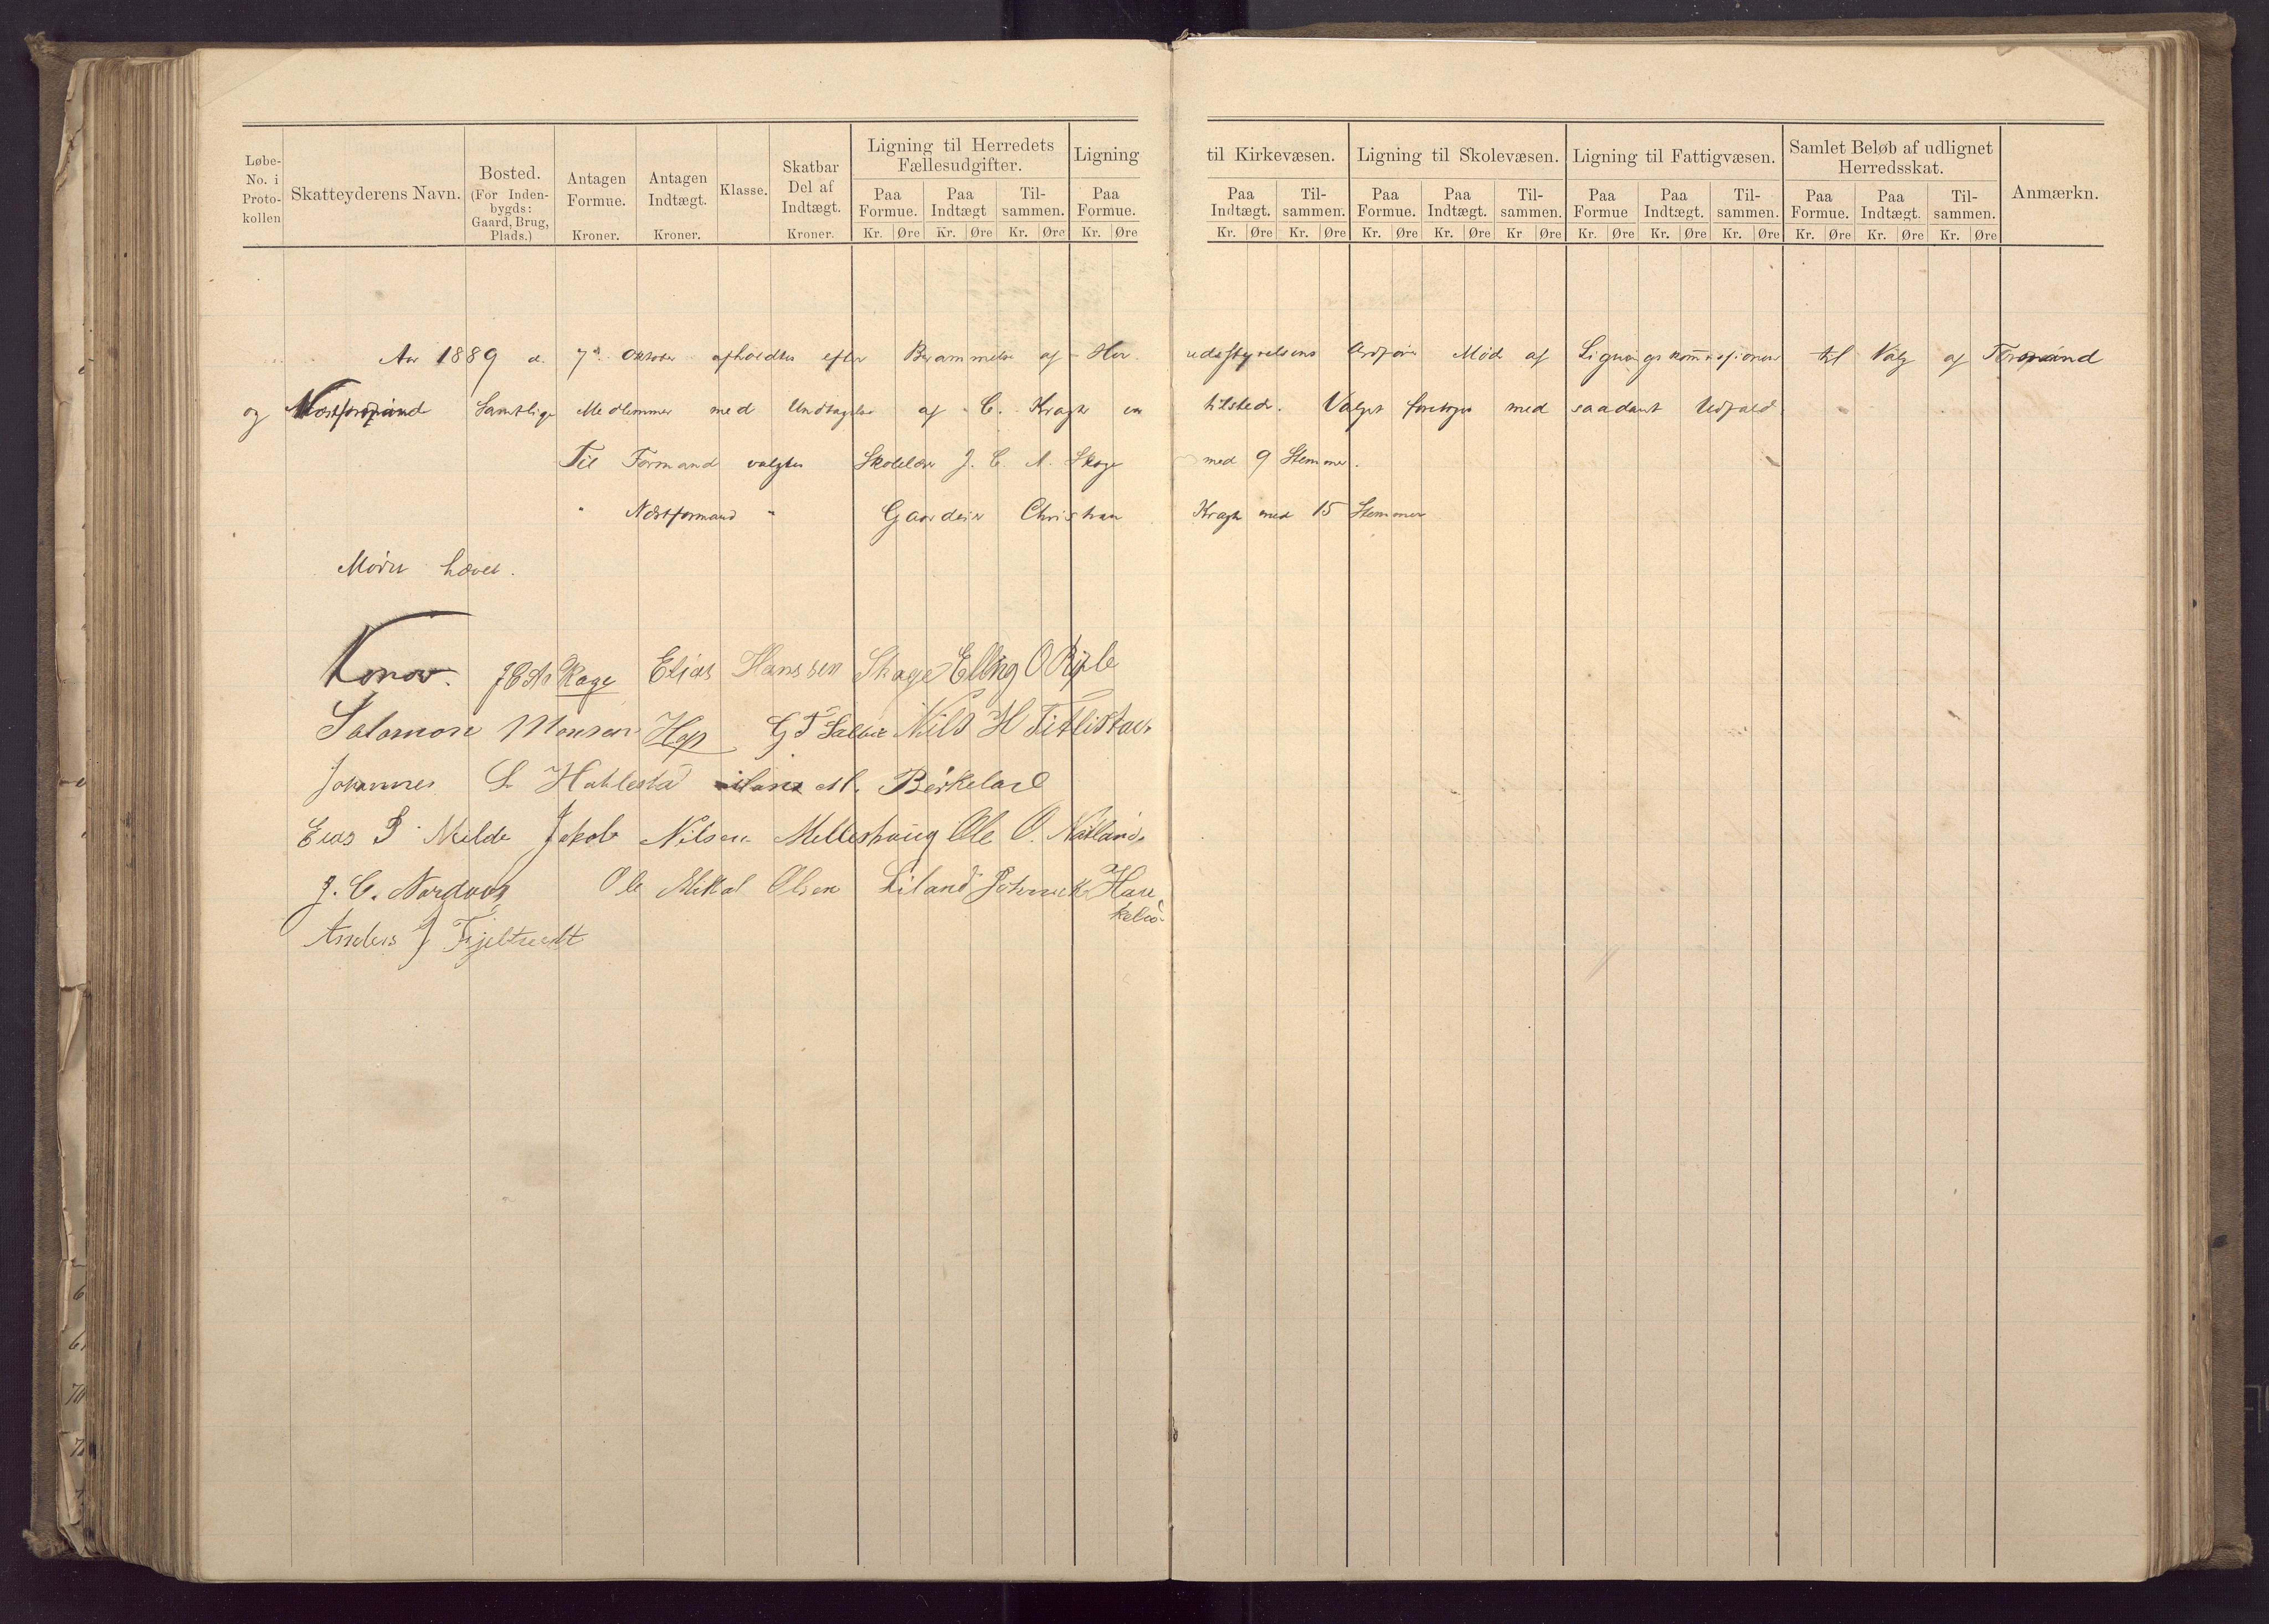 Løbe-No. i Proto-kollen
Skatteyderens Navn.
Bosted. (For Inden-bygds: Gaard, Brug, Plads.)
Antagen Formue. Kroner.
Antagen Indtægt. Kroner.
Klasse.
Skatbar Del af Indtægt. Kroner.
Ligning til Herredets Fællesudgifter.
Paa Formue. Kr. Øre
Paa Indtægt Kr. Øre
Til-sammen. Kr. Øre
Ligning
Paa Formue. Kr. Øre
til Kirkevæsen.
Paa Indtægt. Kr. Øre
Til-sammen. Kr. Øre
Ligning til Skolevæsen.
Paa Formue. Kr. Øre
Paa Indtægt. Kr. Øre
Til-sammen. Kr Øre
Ligning til Fattigvæsen.
Paa Formue Kr. Øre
Paa Indtægt. Kr. Øre
Til-sammen. Kr. Øre
Samlet Beløb af udlignet Herredsskat.
Paa Formue. Kr. Øre
Paa Indtægt. Kr. Øre
Til-sammen. Kr. Øre
Anmærkn.
Aar 1889 d. 7de Oktober afholdtes efter Berammelse af Her redsstyrelsens Ordfører Møde af Ligningskommissionen til Valg af Formand
og Næstformand Samtlige Medlemmer med Undtagelse af C. Kragh var tilstede. Valget foretoges med saadant Udfald
Til Formand valgtes Skolelærer J. C. A. Skage med 9 Stemmer.
" Næstformand " Gaardeier Christian Kragh med 15 Stemmer
Mødet hævet.
Konow. J C A Skage Elias Hanssen Skage Elling O Riple
Salomon Monsen Hop G T Nils H Titlestad
Johannes L Hatlestad Hans M. Birkeland
P Milde Jakob Nilsen Melleshaug Ole O. Natland
J. C. Nordvig Ole Mikal Olsen Liland
Anders J Fjeldtvedt